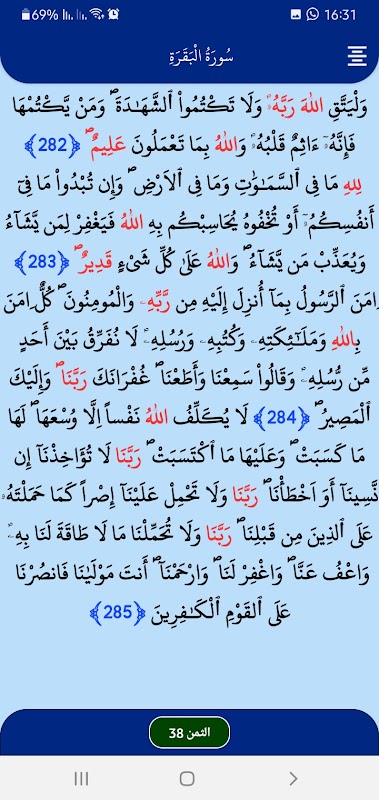 69% 16:31
سُورَةُ الْبَقَرَةِ
وَلْيَتَّقِ اِ۬للَّهَ رَبَّهُۥۖ وَلَا تَكْتُمُواْ اُ۬لشَّهَٰدَةَۖ وَمَنْ يَّكْتُمْهَا
فَإِنَّهُۥٓ ءَاثِمٞ قَلْبُهُۥۖ وَاللَّهُ بِمَا تَعْمَلُونَ عَلِيمٞۖ ﴿282﴾
لِلهِ مَا فِے اِ۬لسَّمَٰوَٰتِ وَمَا فِے اِ۬لَارْضِۖ وَإِن تُبْدُواْ مَا فِےٓ
أَنفُسِكُمُۥٓ أَوْ تُخْفُوهُ يُحَاسِبْكُم بِهِ اِ۬للَّهُ فَيَغْفِرْ لِمَن يَّشَآءُ
وَيُعَذِّبْ مَن يَّشَآءُۖ وَاللَّهُ عَلَىٰ كُلِّ شَےْءٖ قَدِيرٌۖ ﴿283﴾
ءَامَنَ اَ۬لرَّسُولُ بِمَآ أُنزِلَ إِلَيْهِ مِن رَّبِّهِۦ وَالْمُومِنُونَۖ كُلٌّ ـ اٰمَنَ
بِاللَّهِ وَمَلَٰٓئِكَتِهِۦ وَكُتُبِهِۦ وَرُسُلِهِۦۖ لَا نُفَرِّقُ بَيْنَ أَحَدٖ
مِّن رُّسُلِهِۦۖ وَقَالُواْ سَمِعْنَا وَأَطَعْنَاۖ غُفْرَانَكَ رَبَّنَاۖ وَإِلَيْكَ
اَ۬لْمَصِيرُۖ ﴿284﴾ لَا يُكَلِّفُ اُ۬للَّهُ نَفْساً اِلَّا وُسْعَهَاۖ لَهَا
مَا كَسَبَتْۖ وَعَلَيْهَا مَا اَ۪كْتَسَبَتْۖ رَبَّنَا لَا تُؤَاخِذْنَآ إِن
نَّسِينَآ أَوَ اَخْطَأْنَاۖ رَبَّنَا وَلَا تَحْمِلْ عَلَيْنَآ إِصْراً كَمَا حَمَلْتَهُۥ
عَلَى اَ۬لذِينَ مِن قَبْلِنَاۖ رَبَّنَا وَلَا تُحَمِّلْنَا مَا لَا طَاقَةَ لَنَا بِهِۦۖ
وَاعْفُ عَنَّاۖ وَاغْفِرْ لَنَاۖ وَارْحَمْنَآۖ أَنتَ مَوْلَيٰنَا فَانصُرْنَا
عَلَى اَ۬لْقَوْمِ اِ۬لْكٰ۪فِرِينَ ﴿285﴾
الثمن 38